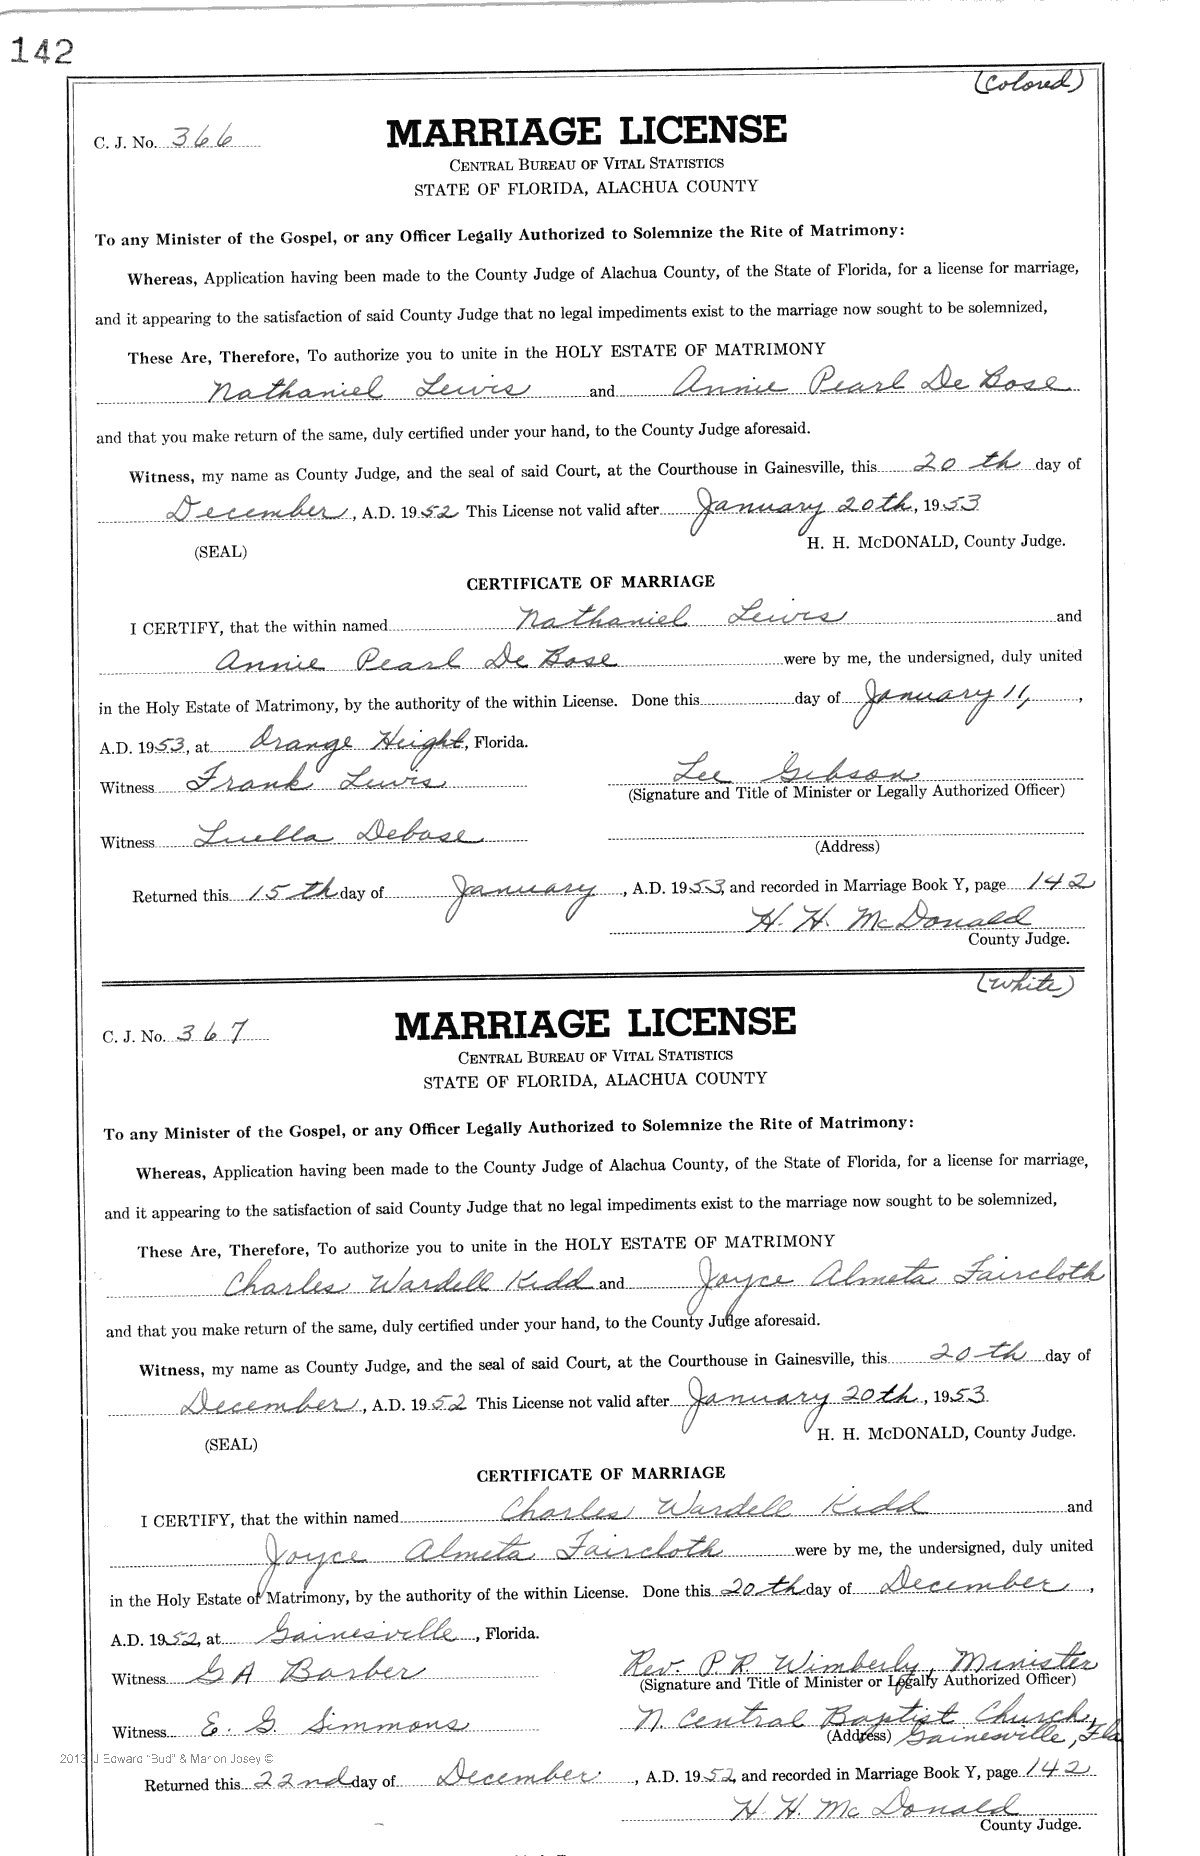 142
(Colored)
C. J. No. 366
MARRIAGE LICENSE
CENTRAL BUREAU OF VITAL STATISTICS
STATE OF FLORIDA, ALACHUA COUNTY
To any Minister of the Gospel, or any Officer Legally Authorized to Solemnize the Rite of Matrimony:
Whereas, Application having been made to the County Judge of Alachua County, of the State of Florida, for a license for marriage,
and it appearing to the satisfaction of said County Judge that no legal impediments exist to the marriage now sought to be solemnized,
These Are, Therefore, To authorize you to unite in the HOLY ESTATE OF MATRIMONY
Nathaniel Lewis and Annie Pearl De Bose
and that you make return of the same, duly certified under your hand, to the County Judge aforesaid.
Witness, my name as County Judge, and the seal of said Court, at the Courthouse in Gainesville, this 20th day of
December, A.D. 1952 This License not valid after January 20th, 1953
(SEAL) H. H. McDONALD, County Judge.
CERTIFICATE OF MARRIAGE
I CERTIFY, that the within named Nathaniel Lewis and
Annie Pearl De Bose were by me, the undersigned, duly united
in the Holy Estate of Matrimony, by the authority of the within License. Done this day of January 11, ,
A.D. 1953, at Orange Height, Florida.
Witness Frank Lewis Lee Gibson
(Signature and Title of Minister or Legally Authorized Officer)
Witness Luella Debose
(Address)
Returned this 15th day of January, A.D. 1953, and recorded in Marriage Book Y, page 142
H. H. McDonald
County Judge.
(White)
C. J. No. 367
MARRIAGE LICENSE
CENTRAL BUREAU OF VITAL STATISTICS
STATE OF FLORIDA, ALACHUA COUNTY
To any Minister of the Gospel, or any Officer Legally Authorized to Solemnize the Rite of Matrimony:
Whereas, Application having been made to the County Judge of Alachua County, of the State of Florida, for a license for marriage,
and it appearing to the satisfaction of said County Judge that no legal impediments exist to the marriage now sought to be solemnized,
These Are, Therefore, To authorize you to unite in the HOLY ESTATE OF MATRIMONY
Charles Wardell Kidd and Joyce Almeta Faircloth
and that you make return of the same, duly certified under your hand, to the County Judge aforesaid.
Witness, my name as County Judge, and the seal of said Court, at the Courthouse in Gainesville, this 20th day of
December, A.D. 1952 This License not valid after January 20th, 1953
(SEAL) H. H. McDONALD, County Judge.
CERTIFICATE OF MARRIAGE
I CERTIFY, that the within named Charles Wardell Kidd and
Joyce Almeta Faircloth were by me, the undersigned, duly united
in the Holy Estate of Matrimony, by the authority of the within License. Done this 20th day of December,
A.D. 1952, at Gainesville, Florida.
Witness G A Barber Rev. P. R. Wimberly, Minister
(Signature and Title of Minister or Legally Authorized Officer)
Witness E. G. Simmons N. Central Baptist Church,
(Address) Gainesville, Fla
2013 J Edward "Bud" & Marion Josey ©
Returned this 22nd day of December, A.D. 1952, and recorded in Marriage Book Y, page 142
H. H. McDonald
County Judge.